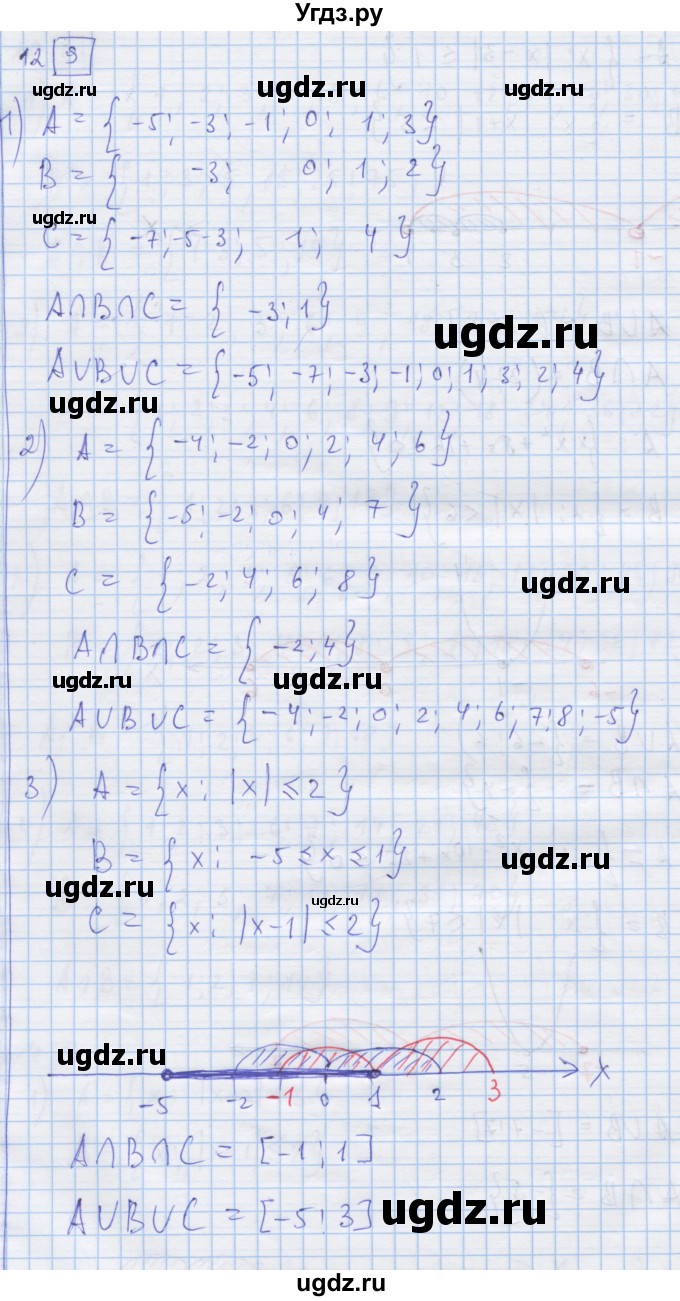 Угдз.ру
12 9
ugdz.ru ugdz.ru
1) A = { -5; -3; -1; 0; 1; 3}
B = { -3; 0; 1; 2}
ugdz.ru
C = { -7; -5 -3; 1; 4}
A∩B∩C = { -3; 1}
ugdz.ru
A∪B∪C = {-5; -7; -3; -1; 0; 1; 3; 2; 4}
ugdz.ru
2) A = { -4; -2; 0; 2; 4; 6}
B = {-5; -2; 0; 4; 7}
C = {-2; 4; 6; 8}
ugdz.ru
A∩B∩C = { -2; 4}
ugdz.ru ugdz.ru
A∪B∪C = {-4; -2; 0; 2; 4; 6; 7; 8; -5}
3) A = {x: |x| ≤ 2}
B = {x: -5 ≤ x ≤ 1}
ugdz.ru
ugdz.ru ugdz.ru
C = {x: |x-1| ≤ 2}
ugdz.ru
-5 -2 -1 0 1 2 3 x
A∩B∩C = [-1; 1]
A∪B∪C = [-5; 3]
ugdz.ru
ugdz.ru